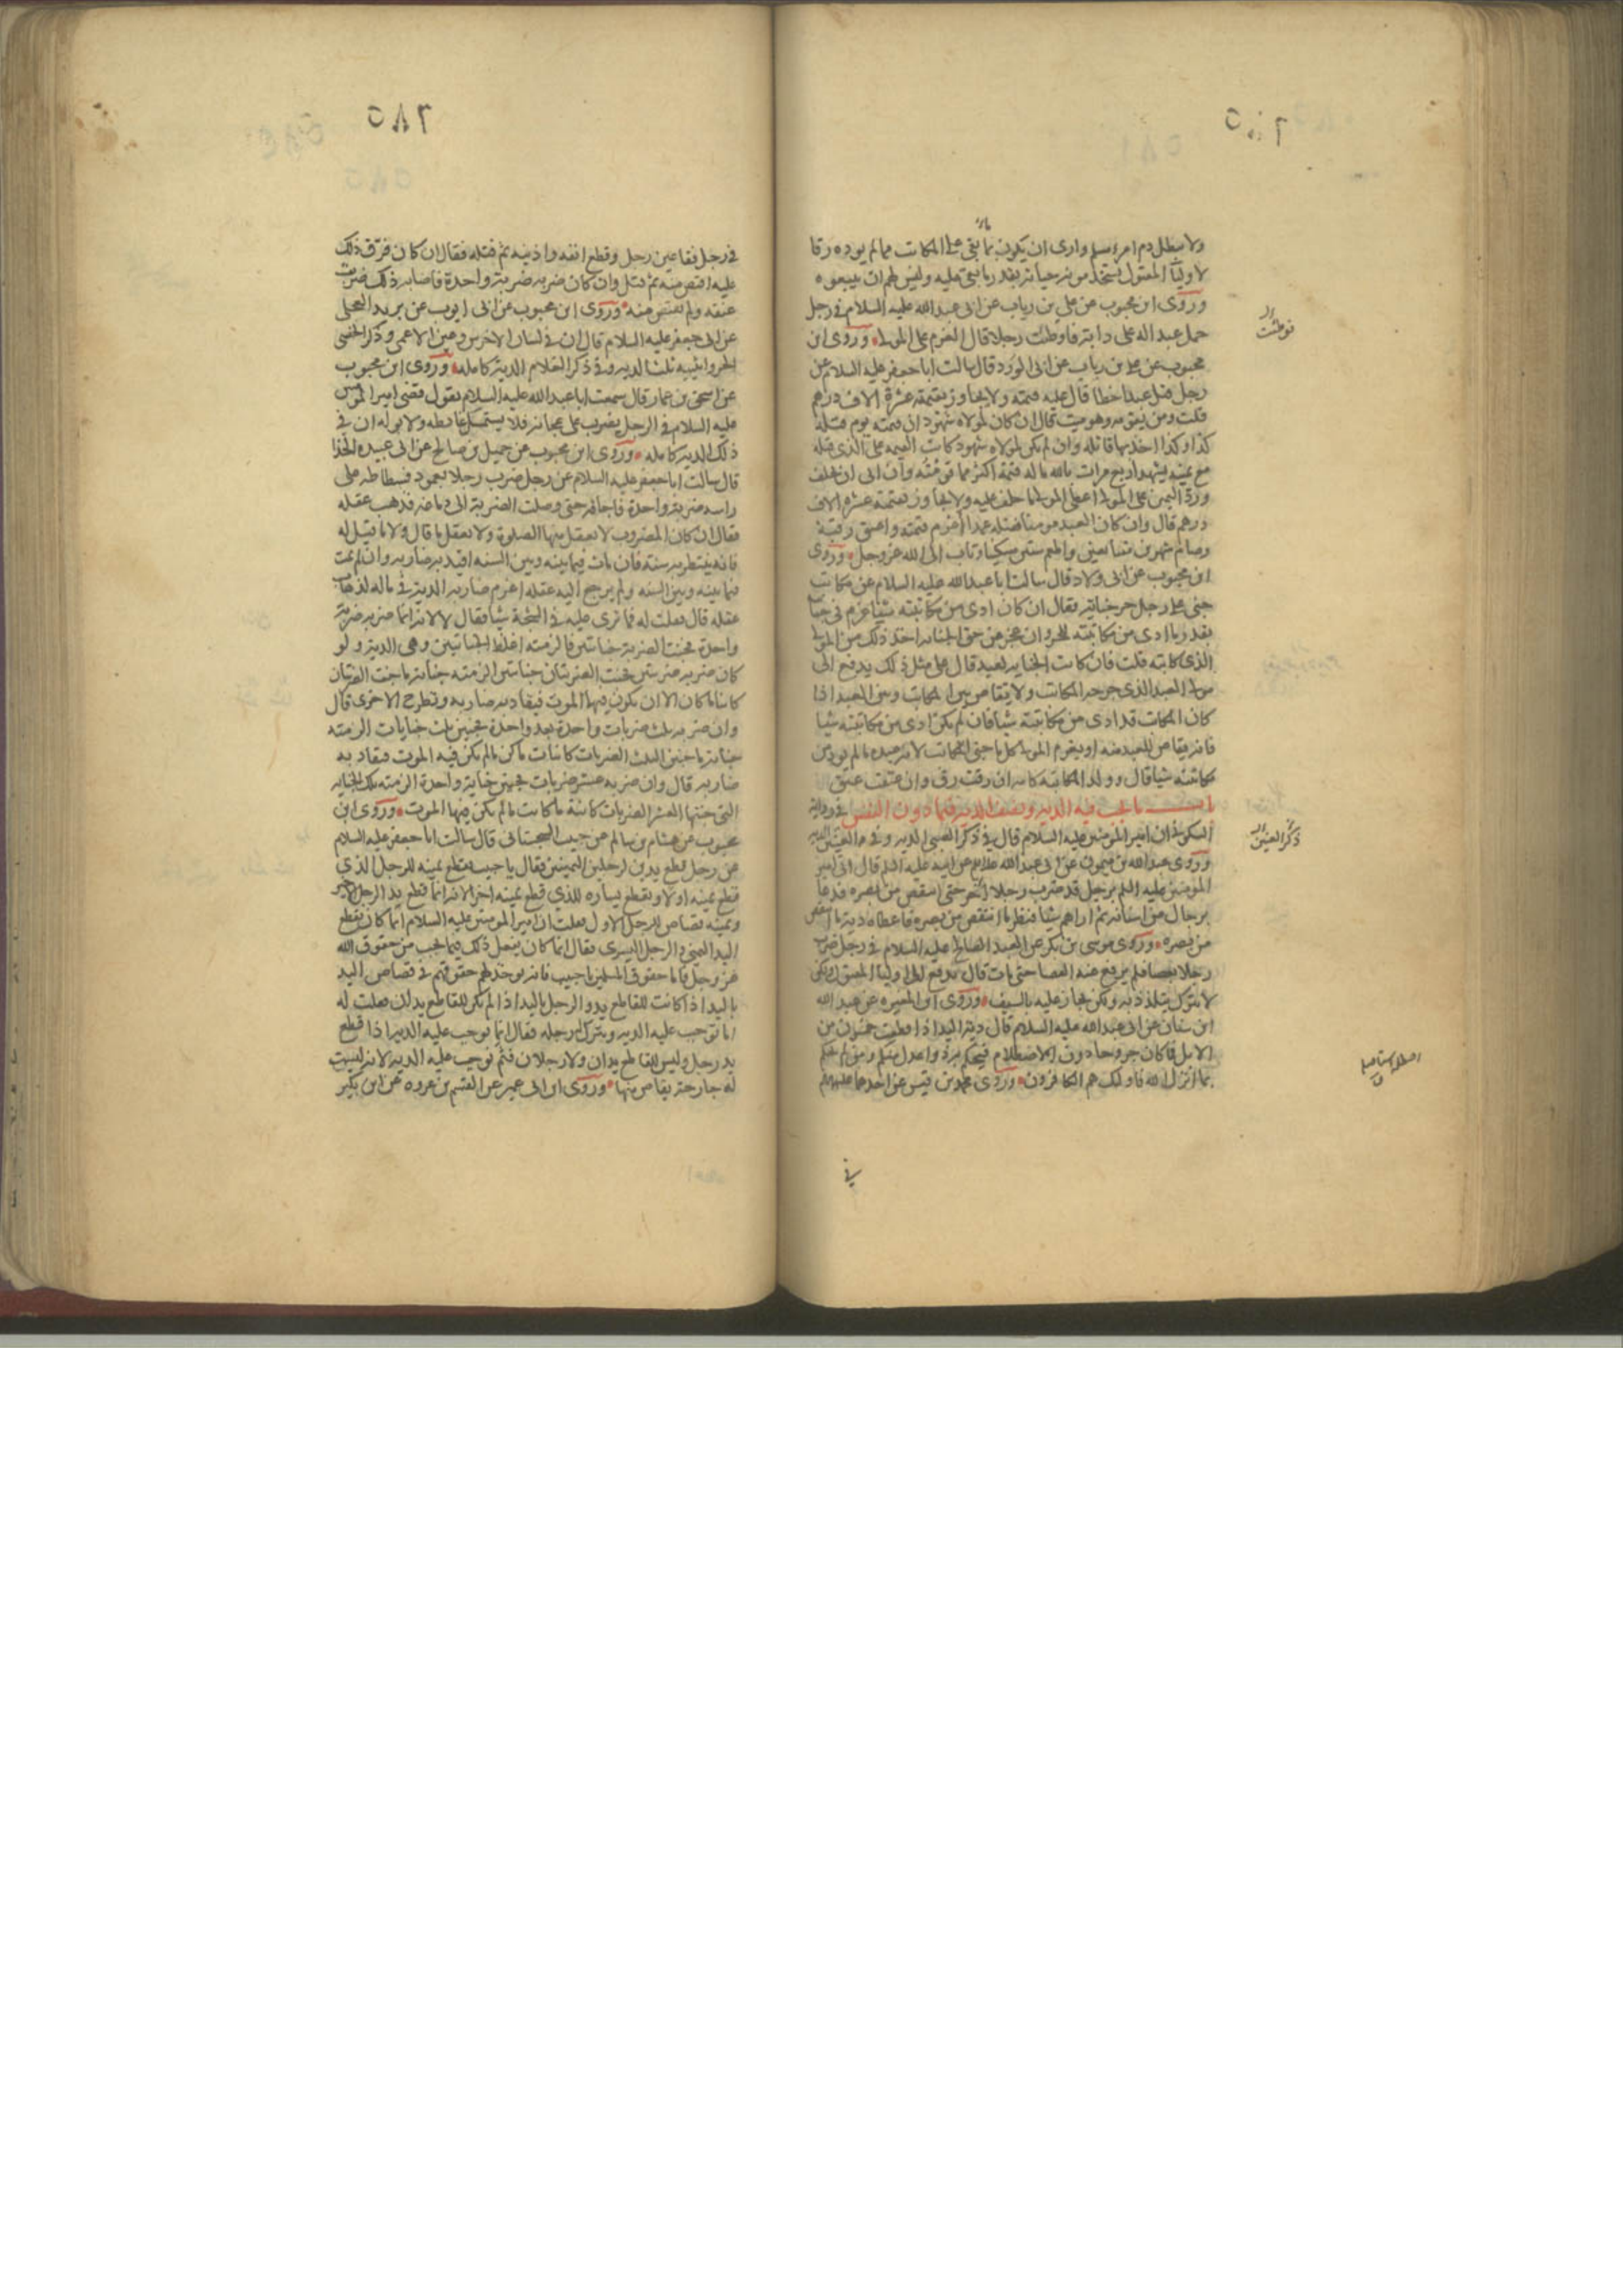 ولا يبطل دم امرء مسلم وارى ان يكون بما بقى على المكاتب مما لم يوده رقا
لاولياء المقتول يستخدمونه حياته بقدر ما بقى عليه وليس لهم ان يبيعوه
وروى ابن محبوب عن علي بن رياب عن ابى عبد الله عليه السلام فى رجل
حمل عبدا له على دابة فاوطئت رجلا قال الغرم على المولى وروى ابن
محبوب عن على بن رياب عن ابى الورد قال سالت ابا جعفر عليه السلام عن
رجل قتل عبدا خطا قال عليه قيمته ولا يجاوز بقيمته عشرة الاف درهم
قلت ومن يقومه وهو ميت قال ان كان لمولاه شهود ان قيمته يوم قتله
كذا وكذا اخذ بها قاتله وان لم يكن لمولاه شهود كانت القيمه على الذى قتله
مع يمينه يشهد اربع مرات بالله ما له قيمة اكثر مما قومته وان ابى ان يحلف
ورد اليمين على المولى اعطى المولى ما حلف عليه ولا يجاوز بقيمته عشره الاف
درهم قال وان كان العبد مومنا فقتله عمدا اغرم قيمته واعتق رقبة
وصام شهرين متتابعين واطعم ستين مسكينا وتاب الى الله عز وجل وروى
ابن محبوب عن ابى ولاد قال سالت ابا عبد الله عليه السلام عن مكاتب
جنى على رجل حر جناية فقال ان كان ادى من مكاتبته شيئا غرم فى جنايته
بقدر ما ادى من مكاتبته للحر وان عجز عن حق الجنايه اخذ ذلك من المولى
الذى كاتبه قلت فان كانت الجنايه لعبد قال على مثل ذلك يدفع الى
مولى العبد الذى جرحه المكاتب ولا يقاص بين المكاتب وبين العبد اذا
كان المكاتب قد ادى من مكاتبته شيئا فان لم يكن ادى من مكاتبته شيا
فانه يقاص للعبد منه او يغرم المولى كل ما جنى المكاتب لانه عبده ما لم يود من
مكاتبته شيا قال وولد المكاتبة كامه ان رقت رق وان عتقت عتق
باب ما يجب فيه الديه ونصف الديه فيما دون النفس فى رواية
السكونى ان امير المومنين عليه السلام قال فى ذكر الصبى الديه وفى العنين الديه
وروى عبد الله بن ميمون عن ابى عبد الله عن ابيه عليه السلم قال اتى امير
المومنين عليه السلم برجل قد ضرب رجلا اخر حتى انتقص من بصره فدعا
برجال من اسنانه ثم اراهم شيا فنظر ما انتقص من بصره فاعطاه دية ما انتقص
من بصره وروى موسى بن بكر عن العبد الصالح عليه السلام فى رجل ضرب
رجلا بعصا فلم يرفع عنه العصا حتى مات قال يدفع الى اولياء المقتول ولكن
لا يترك يتلذذ به ولكن يجاز عليه بالسيف وروى ابن المغيره عن عبد الله
ابن سنان عن ابى عبد الله عليه السلام قال دية اليد اذا قطعت خمسون من
الابل فما كان جروحا دون الاصطلام فيحكم به ذوا عدل منكم ومن لم يحكم
بما انزل الله فاولئك هم الكافرون وروى محمد بن قيس عن احدهما عليهما السلم
فى رجل فقا عين رجل وقطع انفه واذنيه ثم قتله فقال ان كان فرق ذلك
عليه اقتص منه ثم قتل وان كان ضربه ضربة واحدة فاصابه ذلك ضربت
عنقه ولم يقتص منه وروى ابن محبوب عن ابى ايوب عن بريد العجلى
عن ابى جعفر عليه السلام قال ان فى لسان الاخرس وعين الاعمى وذكر الخصى
الحر وانثييه ثلث الديه وفى ذكر الغلام الديه كامله وروى ابن محبوب
عن اسحق بن عمار قال سمعت ابا عبد الله عليه السلام يقول قضى امير المومنين
عليه السلام فى الرجل يضرب على عجانه فلا يستمسك غائطه ولا بوله ان فى
ذلك الديه كامله وروى ابن محبوب عن جميل بن صالح عن ابى عبيده الحذا
قال سالت ابا جعفر عليه السلام عن رجل ضرب رجلا بعمود فسطاط على
راسه ضربة واحدة فاجافه حتى وصلت الضربة الى دماغه فذهب عقله
فقال ان كان المضروب لا يعقل منها الصلوة ولا يعقل ما قال ولا ما قيل له
فانه ينتظر به سنة فان مات فيما بينه وبين السنه اقيد به ضاربه وان لم يمت
فيما بينه وبين السنه ولم يرجع اليه عقله اغرم ضاربه الديه فى ماله لذهاب
عقله قال فقلت له فما ترى عليه فى الشجة شيا فقال لا لانه انما ضربه ضربة
واحدة فجنت الضربة جنايتين فالزمته اغلظ الجنايتين وهى الديه ولو
كان ضربه ضربتين فجنت الضربتان جنايتين الزمته جناية ما جنت الضربتان
كاينا ما كان الا ان يكون فيهما الموت فيقاد به ضاربه وتطرح الاخرى قال
وان ضربه ثلث ضربات واحدة بعد واحدة فجنين ثلث جنايات الزمته
جناية ما جنين الثلث الضربات كاينات ما كن ما لم يكن فيه الموت فيقاد به
ضاربه قال وان ضربه عشر ضربات فجنين جناية واحدة الزمته تلك الجنايه
التى جنتها العشر الضربات كائنة ما كانت ما لم يكن فيها الموت وروى ابن
محبوب عن هشام بن سالم عن حبيب السجستانى قال سالت ابا جعفر عليه السلام
عن رجل قطع يدين لرجلين اليمينين فقال يا حبيب يقطع يمينه للرجل الذى
قطع يمينه اولا ويقطع يساره للذى قطع يمينه اخرا لانه انما قطع يد الرجل الاخير
ويمينه قصاص للرجل الاول فقلت ان امير المومنين عليه السلام انما كان يقطع
اليد اليمنى والرجل اليسرى فقال انما كان يفعل ذلك فيما يجب من حقوق الله
عز وجل فاما حقوق المسلمين يا حبيب فانه يوخذ لهم حقوقهم فى قصاص اليد
باليد اذا كانت للقاطع يد والرجل باليد اذا لم يكن للقاطع يدان فقلت له
اما توجب عليه الديه ويترك له رجله فقال انما يوجب عليه الديه اذا قطع
يد رجل وليس للقاطع يدان ولا رجلان فثم نوجب عليه الديه لانه ليست
له جارحة يقاص منها وروى ابن ابى عمير عن القسم بن عروه عن ابن بكير